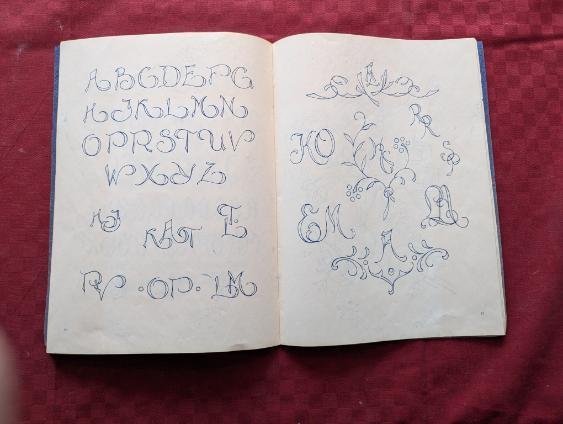 ABCDEFG
HJKLMN
OPRSTUV
WXYZ
HJ
KAT
PV ·OP· LM
A
RR
KO
EM
A